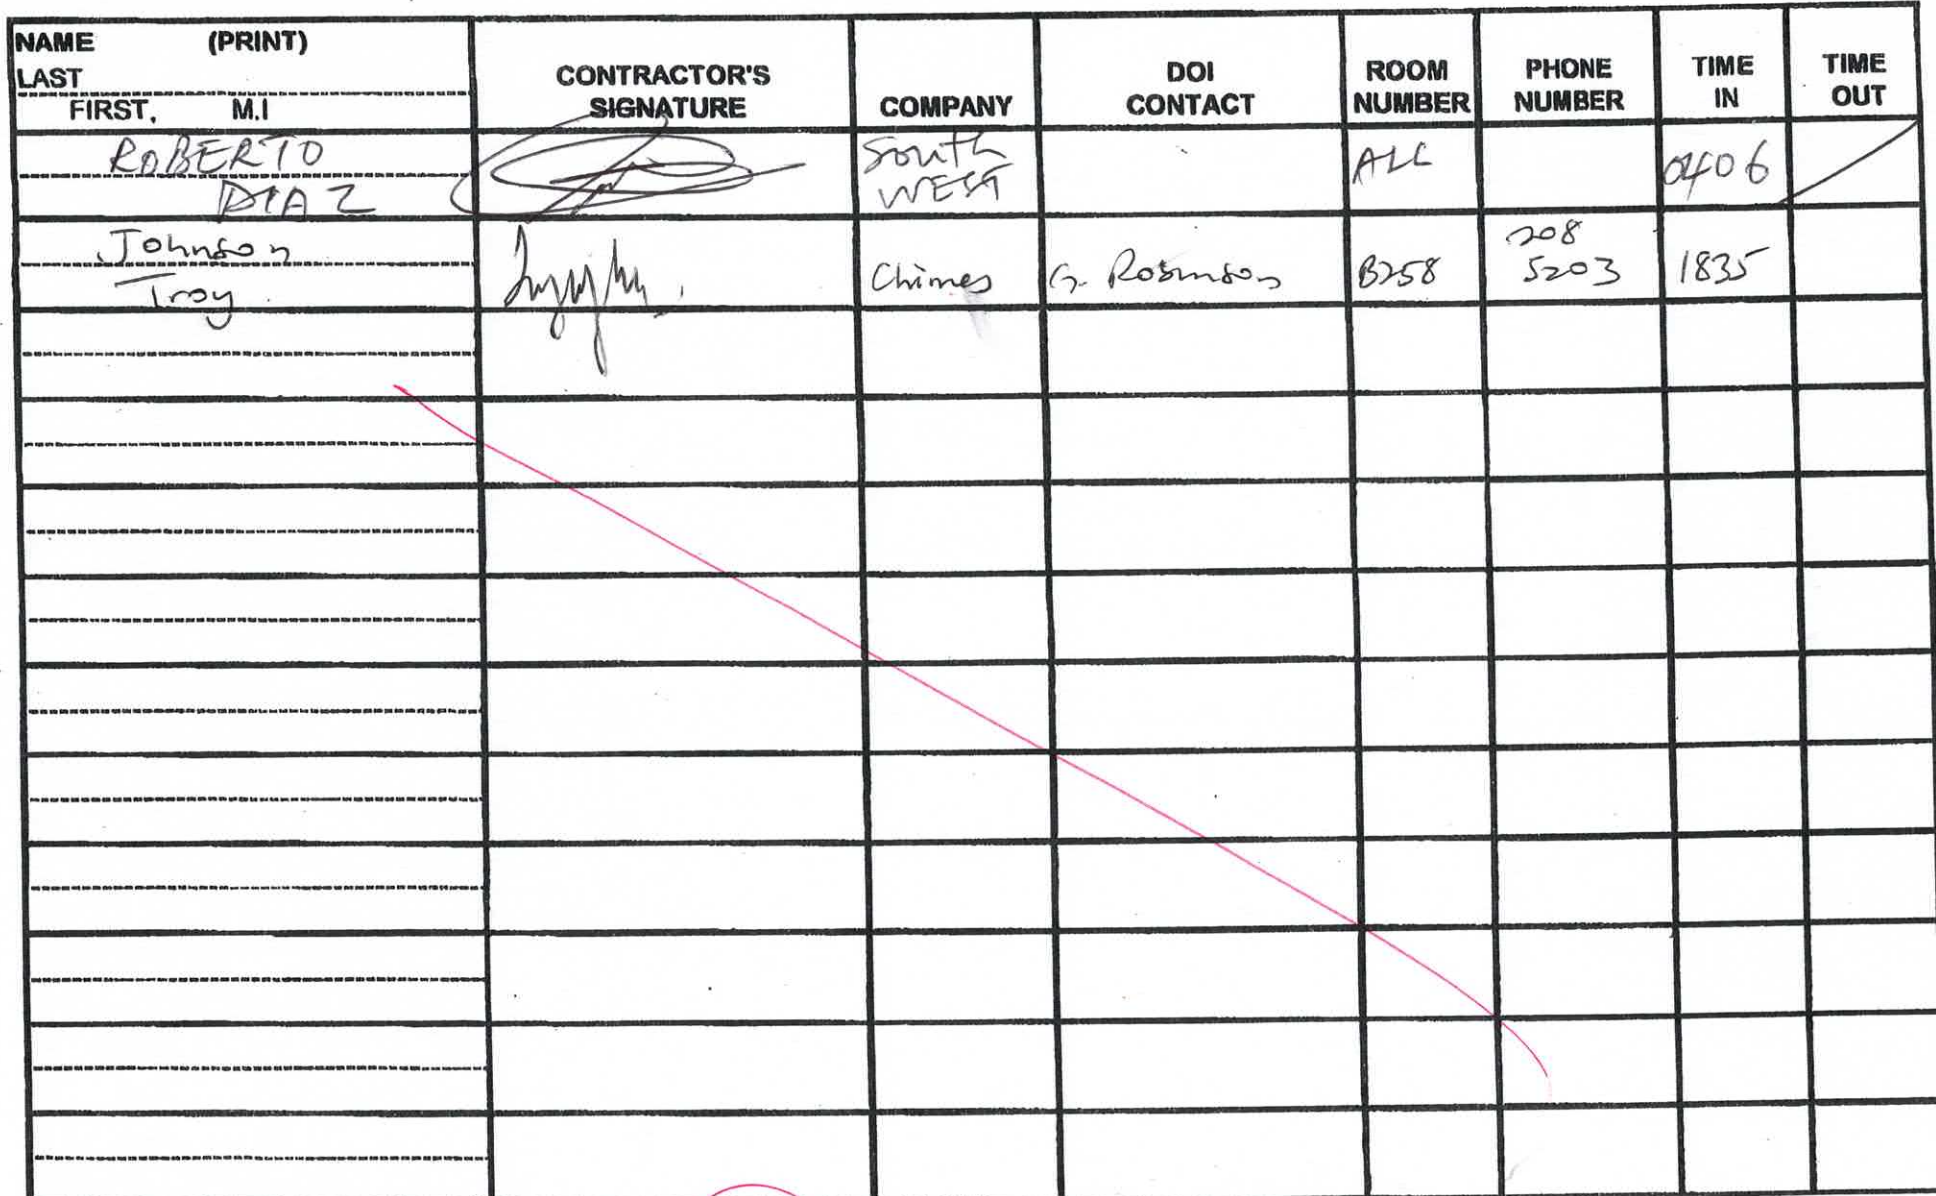 NAME (PRINT)
LAST
FIRST, M.I
CONTRACTOR'S
SIGNATURE
COMPANY
DOI
CONTACT
ROOM
NUMBER
PHONE
NUMBER
TIME
IN
TIME
OUT
ROBERTO
DIAZ
South
WEST
ALL
0406
Johnson
Troy
Chimes
G. Robinson
B258
208
5203
1835